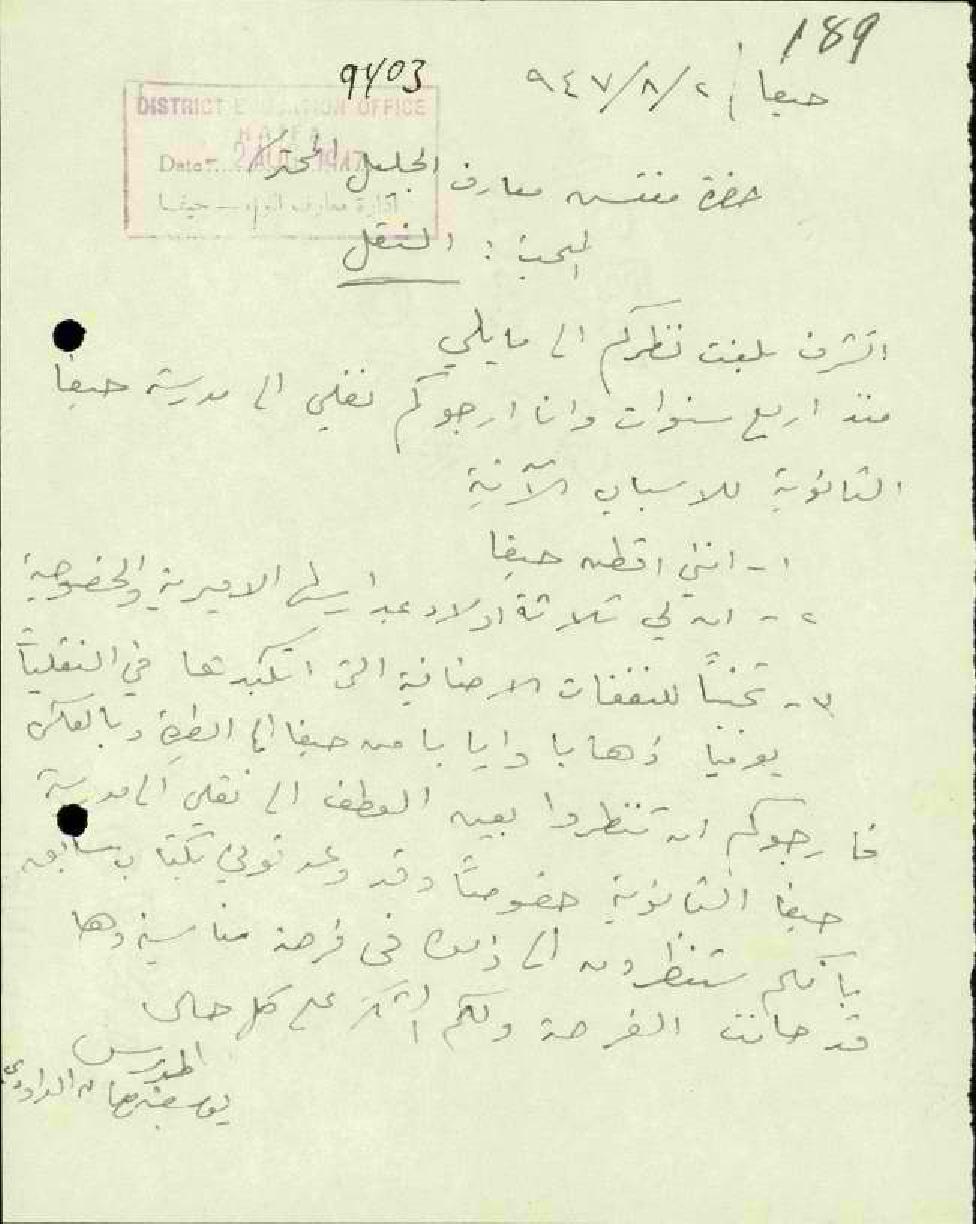 189
9403
حيفا / ٢/٨/٩٤٧
DISTRICT EDUCATION OFFICE
HAIFA
Date 2 AUG 1947
ادارة معارف اللواء — حيفا
حضرة مفتش معارف الجليل المحترم
المبحث : التنقل
اتشرف بلفت نظركم الى ما يلي
منذ اربع سنوات وانا ارجوكم نقلي الى مدرسة حيفا
الثانوية للاسباب الآتية
١ - انني اقطن حيفا
٢ - ان لي ثلاثة اولاد بمدارسها الاميرية والخصوصية
٣ - تجنباً للنفقات الاضافية التي اتكبدها في التنقلات
يومياً ذهابا وايابا من حيفا الى الطيرة وبالعكس
فارجوكم ان تنظروا بعين العطف الى نقلي الى مدرسة
حيفا الثانوية خصوصاً وقد وعدتوني بكتاب سابق
بانكم ستنظرون الى ذلك في فرصة مناسبة وها
قد حانت الفرصة ولكم الشكر على كل حال
المدرس
يوسف